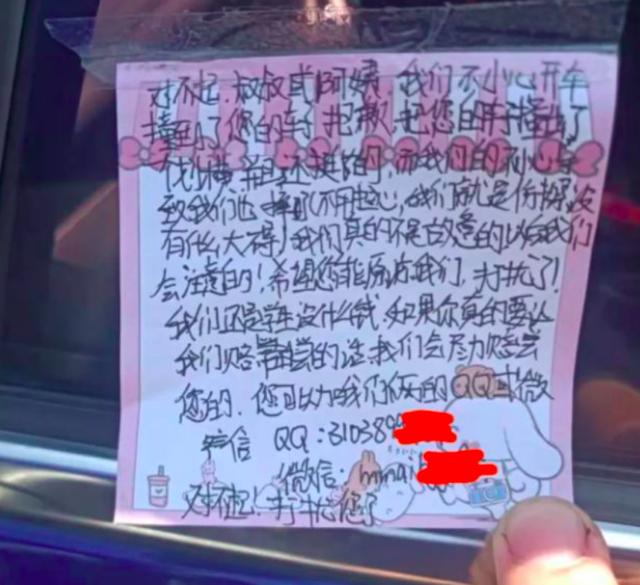 对不起,叔叔或阿姨,我们不小心开车
撞到了您的车,抱歉,把您的车撞出了
划横,而且还挺的,而我们的不小心
致我们也 (不用担心,我们就是伤 没
有什么大碍)我们真的不是故意的以后我们
会注意的!希望您能原谅我们,打扰了!
我们还是学生没什么钱,如果你真的要让
我们赔偿的话,我们会尽力赔尝
您的,您可以加我们俩的QQ或微
信 QQ:310389
微信:mmai
对不起!打扰您了